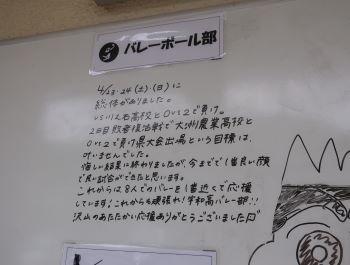 バレーボール部
4/23・24(土)(日)に
総体がありました。
vs 川之石高校と0対2で負け。
2日目敗者復活戦で大洲農業高校と
0対2で負け県大会出場という目標は、
叶いませんでした。
悔しい結果に終わりましたが、今までで1番良い顔
で良い試合ができたと思います。
これからは8人でのバレーを1番近くで応援
しています!これからも頑張れ!宇和高バレー部!!
沢山のあたたかい応援ありがとうございました